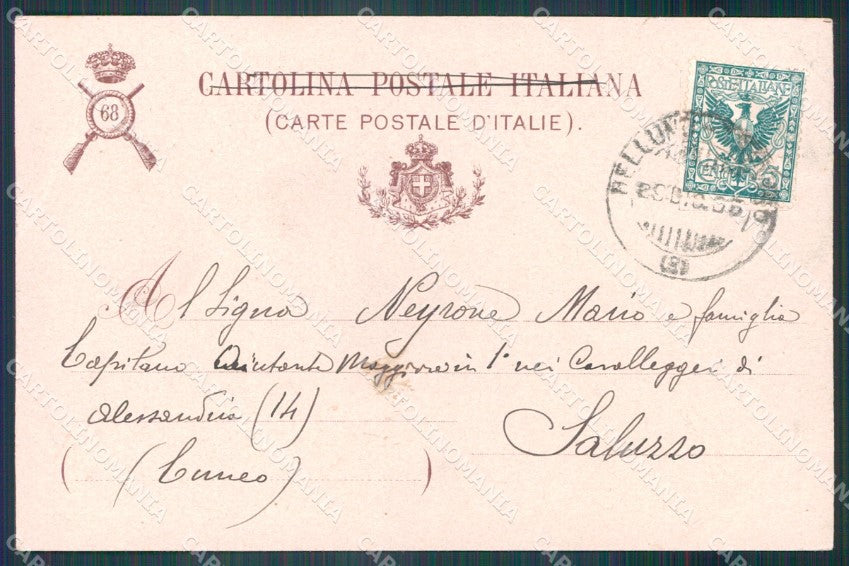 68
CARTOLINA POSTALE ITALIANA
(CARTE POSTALE D'ITALIE).
POSTE ITALIANE
CENT. 5
BELLUNO
(B)
Al Signor Neyrone Mario e famiglia
Capitano Aiutante Maggiore in 1° nei Cavalleggeri di
Alessandria (14) Saluzzo
(Cuneo)
CARTOLINOMANIA